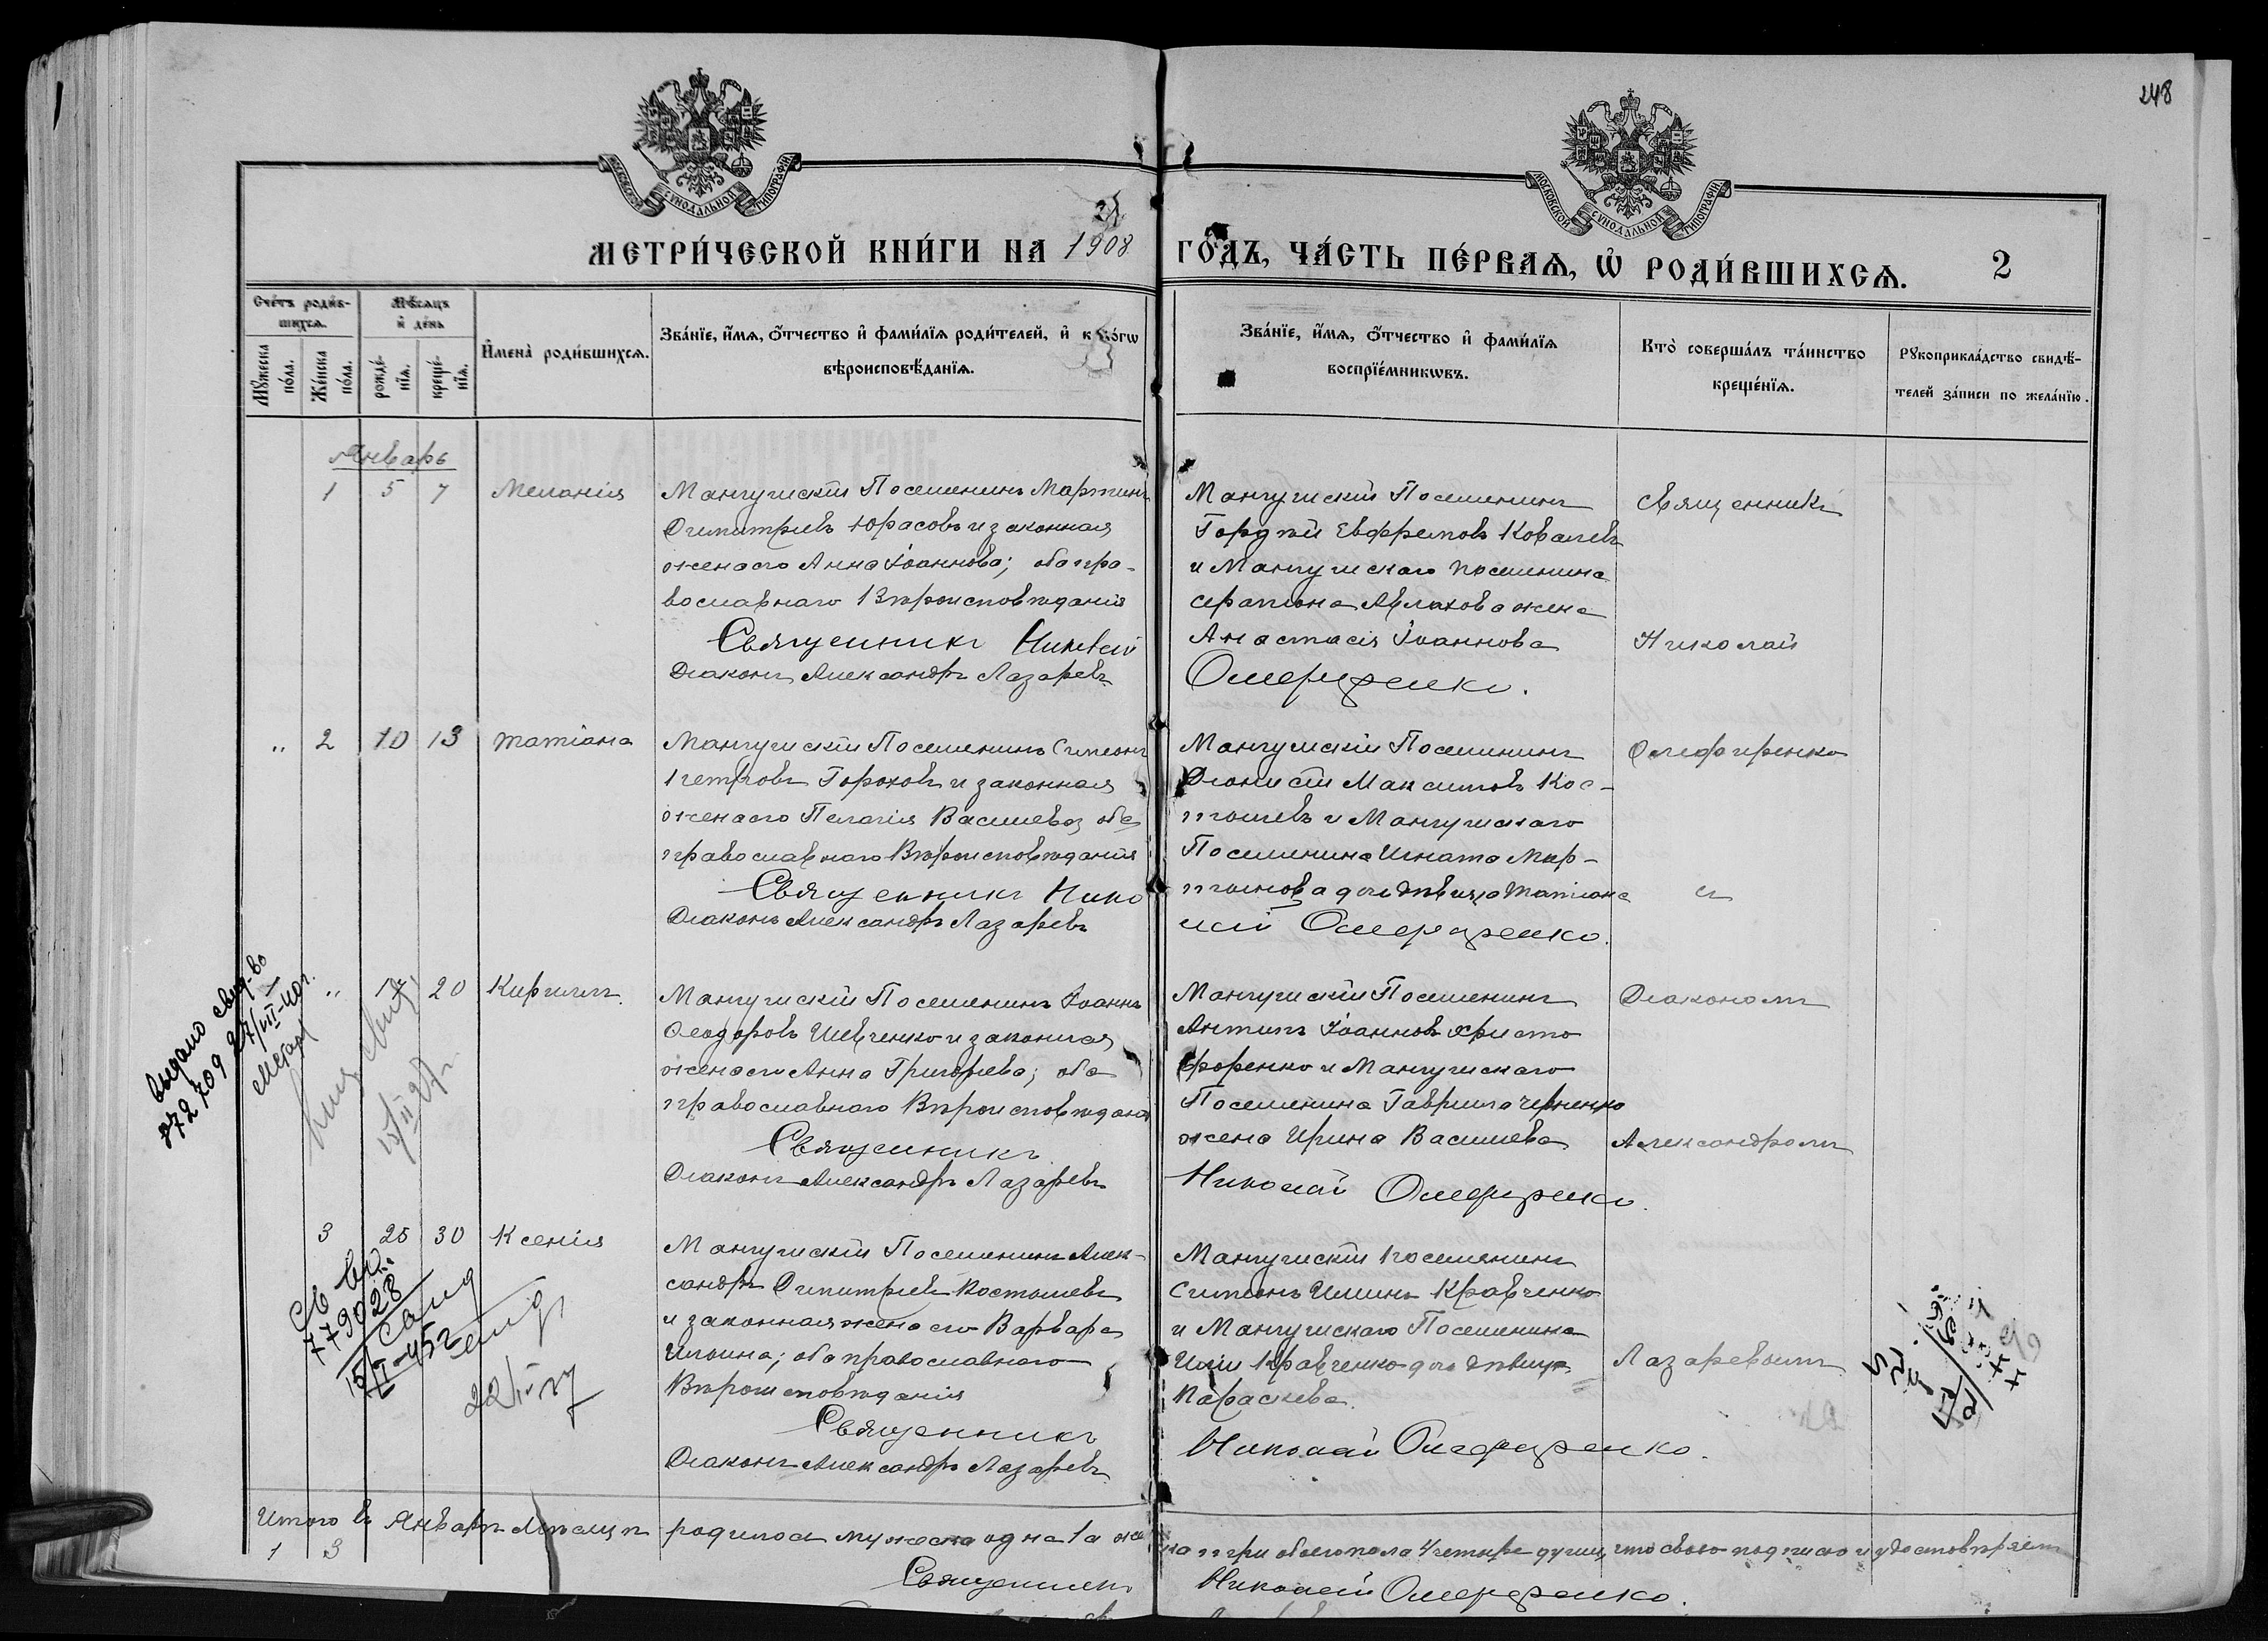 248
МОСКОВСКОЙ СУНОДАЛЬНОЙ ТИПОГРАФІИ
МОСКОВСКОЙ СУНОДАЛЬНОЙ ТИПОГРАФІИ
МЕТРИ́ЧЕСКОЙ КНИ́ГИ НА 1908 ГО́ДЪ, ЧА́СТЬ ПЕ́РВАѦ, Ѡ҆ РОДИ́ВШИХСѦ. 2
Сче́тъ роди́в-
шихсѧ.
Мꙋ́жеска
по́ла.
Же́нска
по́ла.
Мѣ́сѧцъ
и҆ де́нь
рожде́-
нїѧ.
креще́-
нїѧ.
И҆мена̀ роди́вшихсѧ.
Зва́нїе, и҆́мѧ, ѻ҆́тчество и҆ фами́лїѧ роди́телей, и҆ како́гѡ
вѣроисповѣ́данїѧ.
Зва́нїе, и҆́мѧ, ѻ҆́тчество и҆ фами́лїѧ
воспрїе́мникѡвъ.
Кто̀ соверша́лъ та́инство
креще́нїѧ.
Рꙋкоприкла́дство свидѣ́-
телей за́писи по жела́нїю.
Январь
1 5 7 Меланія
Мангушскій Поселенинъ Мартинъ
Димитріевъ Юрасовъ и законная
жена его Анна Іоаннова; оба пра-
вославнаго Вѣроисповѣданія
Священникъ Николай
Діаконъ Александръ Лазаревъ
Мангушскій Поселенинъ
Гордѣй Евфремовъ Ковалевъ
и Мангушскаго поселенина
жена
Анастасія Іоаннова
Олефиренко.
Священникъ
Николай
" 2 10 13 Татіана
Мангушскій Поселенинъ Симеонъ
Петровъ Гороховъ и законная
жена его Пелагія Васильева оба
православнаго Вѣроисповѣданія
Священникъ Нико
Діаконъ Александръ Лазаревъ
Мангушскій Поселенинъ
Діонисій Максимовъ Кос-
тышевъ и Мангушскаго
Поселенина Игната Мар-
тынова дочь дѣвица Татіана
лай Олефиренко.
Олефиренко
съ
" 20 Кириллъ.
Мангушскій Поселенинъ Іоаннъ
Феодоровъ Шевченко и законная
жена его Анна Григорьева; оба
православнаго Вѣроисповѣданія
Священникъ
Діаконъ Александръ Лазаревъ
Мангушскій Поселенинъ
Антипъ Іоанновъ Христо
форенко и Мангушскаго
Поселенина Гавріила Черненко
жена Ирина Васильева
Николай Олефиренко.
Діакономъ
Александромъ
выдано свид-во
872 709 27/VII-40г.
3 25 30 Ксенія
Мангушскій Поселенинъ Алек-
сандръ Димитріевъ Костышевъ
и законная жена его Варвара
Ильина; оба православнаго
Вѣроисповѣданія
Священникъ
Діаконъ Александръ Лазаревъ
Мангушскій Поселянинъ
Симеонъ Ильинъ Кравченко
и Мангушскаго Поселенина
Иліи Кравченко дочь дѣвица
Параскева.
Николай Олефиренко.
Лазаревымъ
779028
Итого въ Январѣ Мѣсяцѣ родилось мужеска одна 1 а женска три обоего пола 4 четыре души, что свою подписью удостовѣряемъ
1 3
Священникъ Николай Олефиренко.